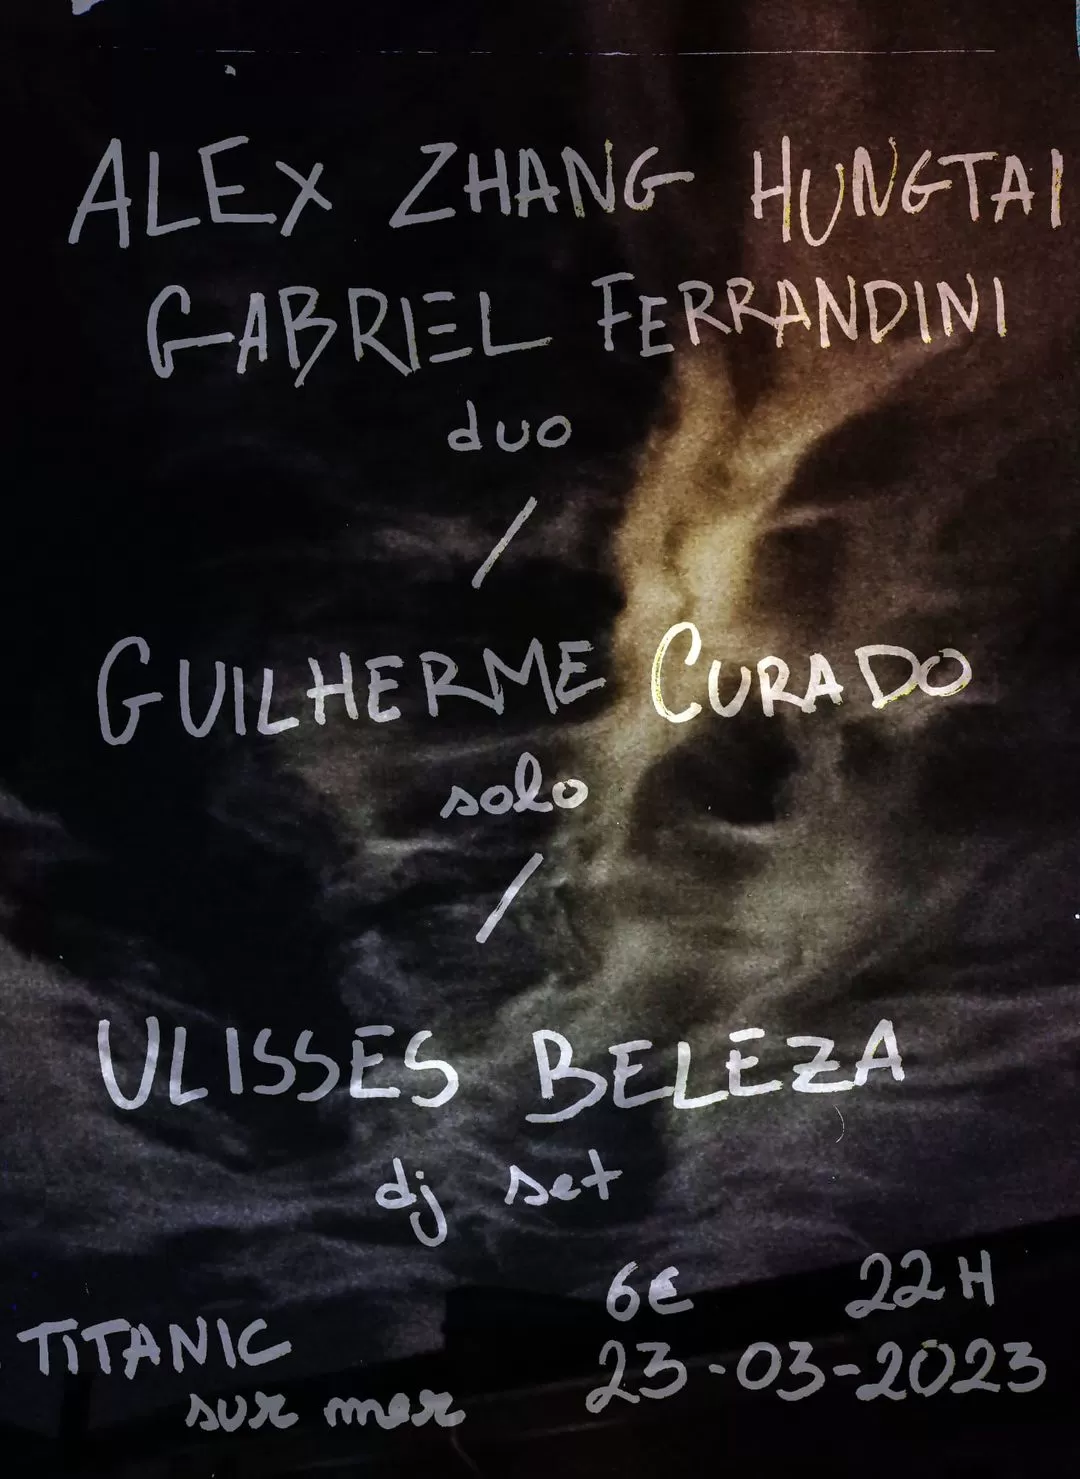 ALEX ZHANG HUNGTAI
GABRIEL FERRANDINI
duo
/
GUILHERME CURADO
solo
/
ULISSES BELEZA
dj set
6€ 22H
TITANIC 23-03-2023
sur mer